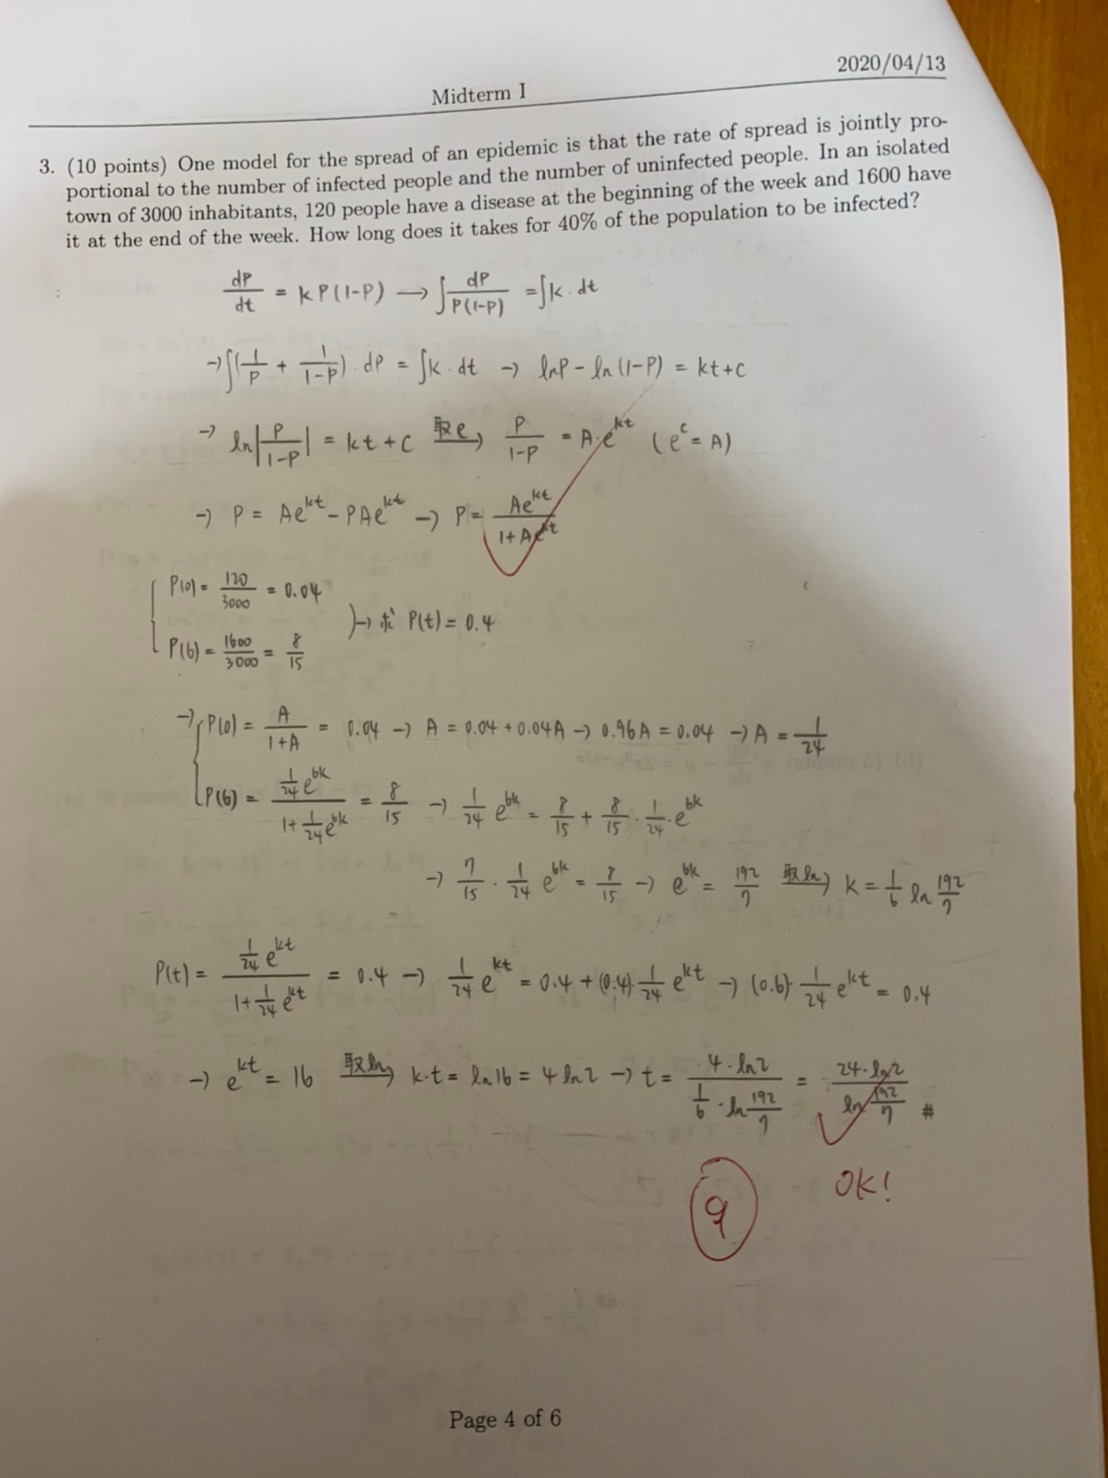 2020/04/13
Midterm I
3. (10 points) One model for the spread of an epidemic is that the rate of spread is jointly pro-
portional to the number of infected people and the number of uninfected people. In an isolated
town of 3000 inhabitants, 120 people have a disease at the beginning of the week and 1600 have
it at the end of the week. How long does it takes for 40% of the population to be infected?
dP/dt = kP(1-P) → ∫ dP/P(1-P) = ∫k·dt
→ ∫(1/P + 1/1-P)·dP = ∫k·dt → lnP - ln(1-P) = kt+c
→ ln|P/1-P| = kt+c 取e→ P/1-P = A·e^kt (e^c = A)
→ P = Ae^kt - PAe^kt → P = Ae^kt/1+Ae^kt
P(0) = 120/3000 = 0.04
P(6) = 1600/3000 = 8/15
→ 求 P(t) = 0.4
→ P(0) = A/1+A = 0.04 → A = 0.04 + 0.04A → 0.96A = 0.04 → A = 1/24
P(6) = 1/24 e^6k / 1+1/24 e^6k = 8/15 → 1/24 e^6k = 8/15 + 8/15 · 1/24 · e^6k
→ 7/15 · 1/24 e^6k = 8/15 → e^6k = 192/7 取ln→ k = 1/6 ln 192/7
P(t) = 1/24 e^kt / 1+1/24 e^kt = 0.4 → 1/24 e^kt = 0.4 + (0.4)·1/24 e^kt → (0.6)·1/24 e^kt = 0.4
→ e^kt = 16 取ln→ k·t = ln16 = 4ln2 → t = 4·ln2 / 1/6·ln 192/7 = 24·ln2 / ln 192/7 #
OK!
9
Page 4 of 6